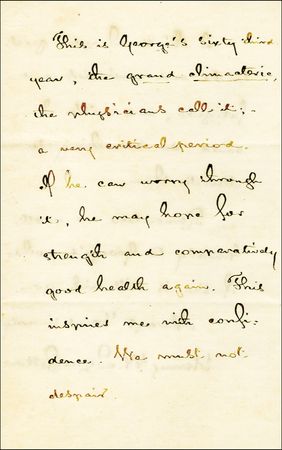 This is George's sixty third
year, the grand climacteric,
the physicians call it;-
a very critical period.
If he can worry through
it, he may hope for
strength and comparatively
good health again. This
inspires me with confi-
dence. We must not
despair.